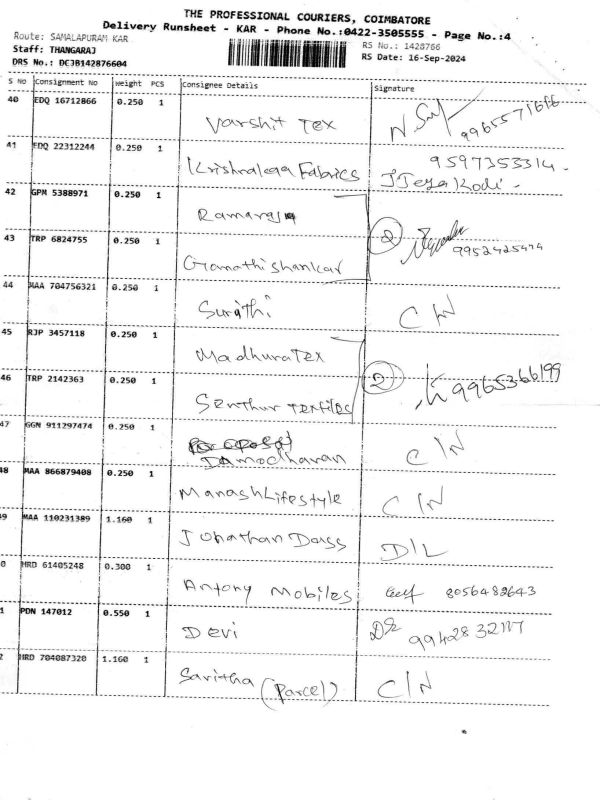 THE PROFESSIONAL COURIERS, COIMBATORE
Delivery Runsheet - KAR - Phone No.:0422-3505555 - Page No.:4
Route: SAMALAPURAM KAR
RS No.: 1428766
Staff: THANGARAJ
RS Date: 16-Sep-2024
DRS No.: DCJB142876604
S No Consignment No Weight PCS Consignee Details Signature
40 EDQ 16712866 0.250 1 Varshit Tex
41 EDQ 22312244 0.250 1 Fabrics 9597353314
42 GPM 5388971 0.250 1 Ramaraj
43 TRP 6824755 0.250 1 Gomathishankar 2 9952425474
44 MAA 704756321 0.250 1 Surathi C/N
45 RJP 3457118 0.250 1 Madhura Tex
46 TRP 2142363 0.250 1 Senthur Textiles 2 9965366199
47 GGN 911297474 0.250 1 Damodharan C/N
48 MAA 866879408 0.250 1 Manash Lifestyle C/N
49 MAA 110231389 1.160 1 Jonathan Dass D/L
0 HRD 61405248 0.300 1 Antony Mobiles 8056482643
1 PDN 147012 0.550 1 Devi
2 HRD 704087320 1.160 1 Saritha (Parcel) C/N